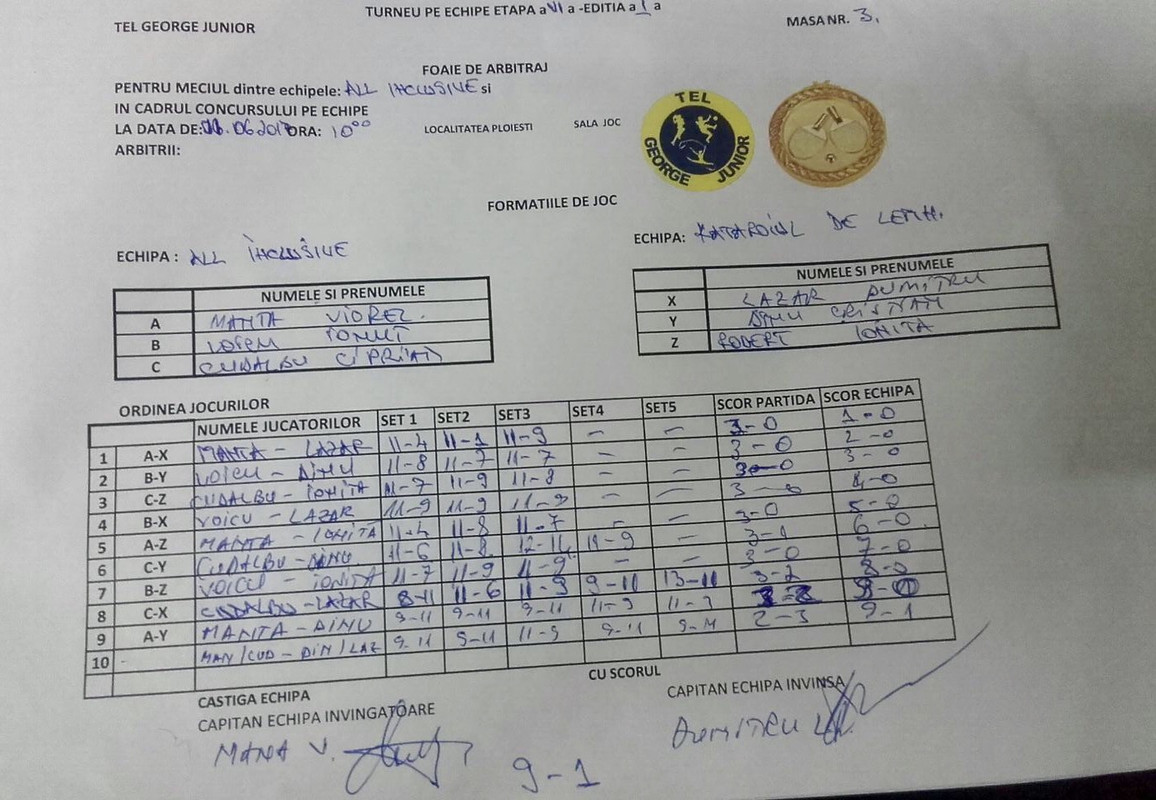 TEL GEORGE JUNIOR
TURNEU PE ECHIPE ETAPA a VI a -EDITIA a I a
MASA NR. 3.
FOAIE DE ARBITRAJ
PENTRU MECIUL dintre echipele: ALL INCLUSIVE si
IN CADRUL CONCURSULUI PE ECHIPE
LA DATA DE: .06.2017 ORA: 10°°
LOCALITATEA PLOIESTI SALA JOC
ARBITRII:
TEL GEORGE JUNIOR
FORMATIILE DE JOC
ECHIPA : ALL INCLUSIVE
ECHIPA: DE LEMN.
NUMELE SI PRENUMELE
A MANTA VIOREL
B VOICU IONUT
C CUDALBU CIPRIAN
NUMELE SI PRENUMELE
X LAZAR DUMITRU
Y DINU CRISTIAN
Z ROBERT IONITA
ORDINEA JOCURILOR
NUMELE JUCATORILOR SET 1 SET2 SET3 SET4 SET5 SCOR PARTIDA SCOR ECHIPA
1 A-X MANTA - LAZAR 11-4 11-1 11-9 - - 3-0 1-0
2 B-Y VOICU - DINU 11-8 11-7 11-7 - - 3-0 2-0
3 C-Z CUDALBU - IONITA 11-7 11-9 11-8 - - 3-0 3-0
4 B-X VOICU - LAZAR 11-9 11-9 11-9 - - 3-0 4-0
5 A-Z MANTA - IONITA 11-4 11-8 11-7 - - 3-0 5-0
6 C-Y CUDALBU - DINU 11-6 11-8 11-9 - 3-1 6-0
7 B-Z VOICU - IONITA 11-7 11-9 11-9 - - 3-0 7-0
8 C-X CUDALBU - LAZAR 8-11 11-6 11-9 9-11 13-11 3-2 8-0
9 A-Y MANTA - DINU 9-11 9-11 11-9 3-2 9-0
10 MAN/CUD - DIN/LAZ 9-11 9-11 11-9 9-11 2-3 9-1
CASTIGA ECHIPA
CU SCORUL
CAPITAN ECHIPA INVINGATOARE
CAPITAN ECHIPA INVINSA
V.
DUMITRU
9-1